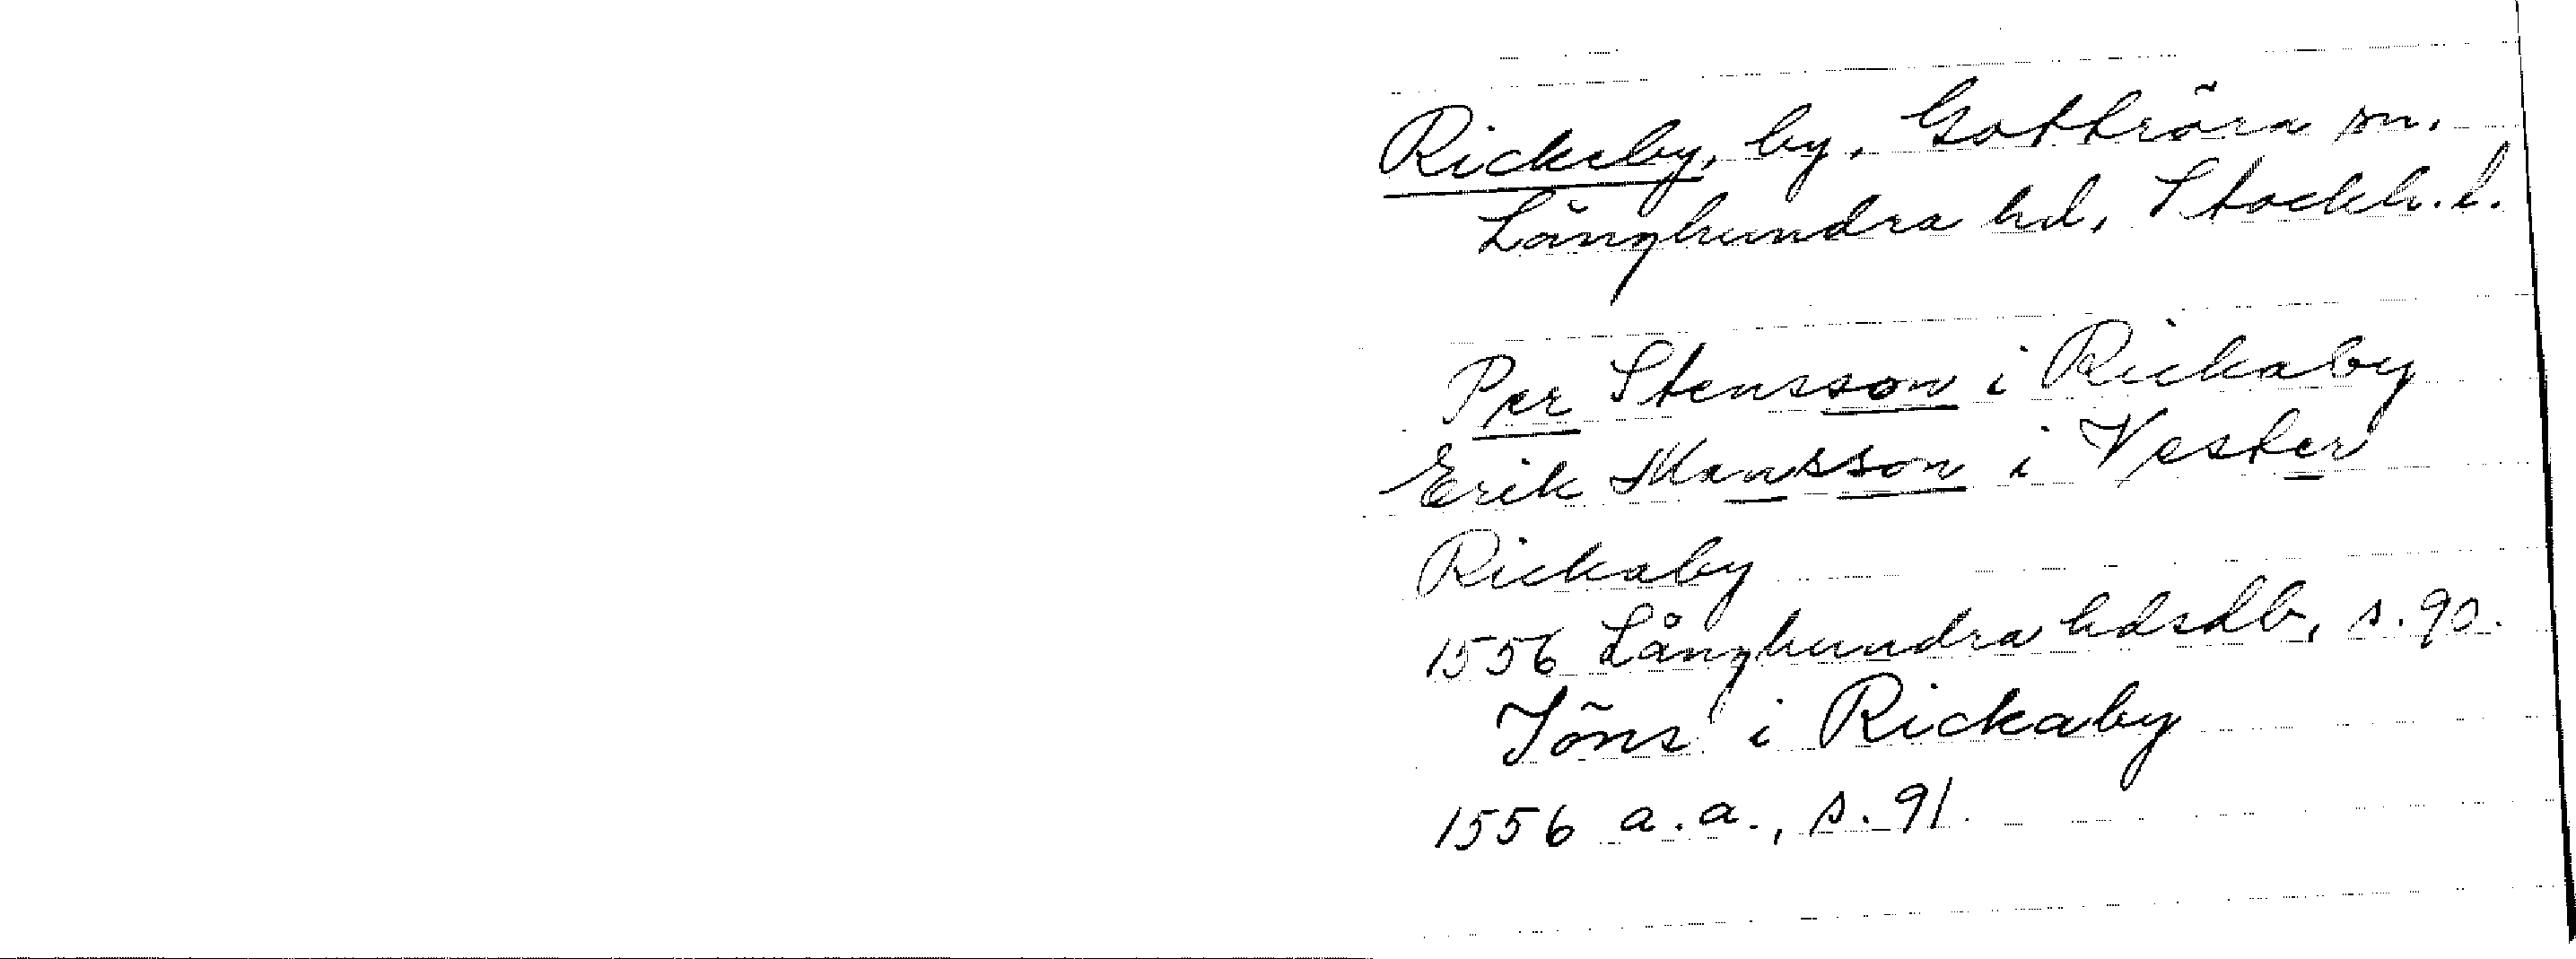 Rickeby, by, Gottröra sn.
Långhundra hd, Stockh. l.
Per Stensson i Rickaby
Erik Mansson i Vester
Rickaby
1556 Långhundra hdsdb, s. 90.
Jöns i Rickaby
1556 a.a., s. 91.